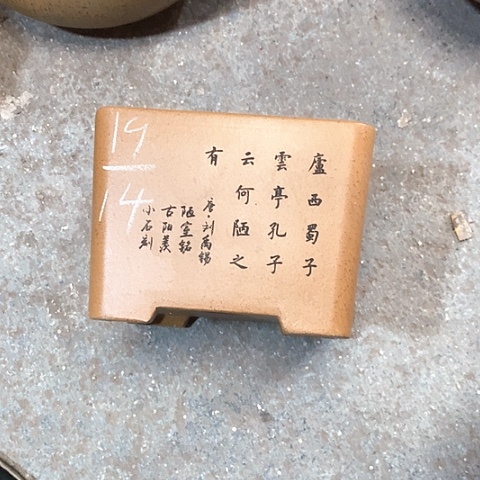 廬西蜀子
雲亭孔子
云何陋之
有
唐·刘禹锡
陋室銘
古陽羨
小石刻
19
14